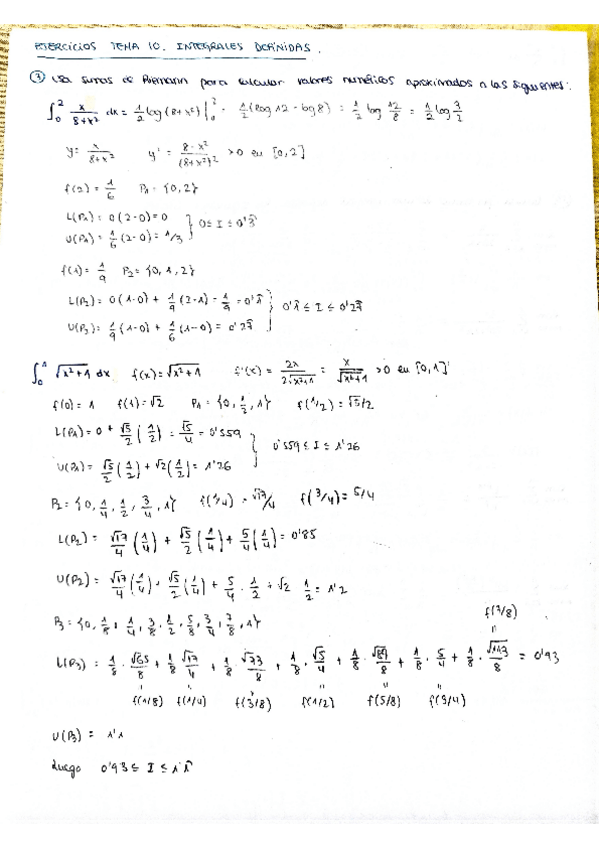 EJERCICIOS TEMA 10. INTEGRALES DEFINIDAS.
① Usa sumas de Riemann para calcular valores numéricos aproximados a las siguientes:
∫₀² x/(8+x²) dx = 1/2 log(8+x²) |₀² = 1/2 (log 12 - log 8) = 1/2 log 12/8 = 1/2 log 3/2
y = x/(8+x²) y' = (8-x²)/(8+x²)² >0 en [0,2]
f(2) = 1/6 P₁ = {0,2}
L(P₁) = 0(2-0) = 0
U(P₁) = 1/6 (2-0) = 1/3 } 0 ≤ I ≤ 0'3̂
f(1) = 1/9 P₂ = {0,1,2}
L(P₂) = 0(1-0) + 1/9 (2-1) = 1/9 = 0'1̂
U(P₂) = 1/9 (1-0) + 1/6 (1-0) = 0'27̂ } 0'1̂ ≤ I ≤ 0'27̂
∫₀¹ √(x²+1) dx f(x) = √(x²+1) f'(x) = 2x/(2√(x²+1)) = x/√(x²+1) >0 en [0,1]
f(0) = 1 f(1) = √2 P₁ = {0, 1/2, 1} f(1/2) = √5/2
L(P₁) = 0 + √5/2 (1/2) = √5/4 = 0'559
U(P₁) = √5/2 (1/2) + √2 (1/2) = 1'26 } 0'559 ≤ I ≤ 1'26
P₂ = {0, 1/4, 1/2, 3/4, 1} f(1/4) = √17/4 f(3/4) = 5/4
L(P₂) = √17/4 (1/4) + √5/2 (1/4) + 5/4 (1/4) = 0'85
U(P₂) = √17/4 (1/4) + √5/2 (1/4) + 5/4 · 1/2 + √2 1/2 = 1'2
P₃ = {0, 1/8, 1/4, 3/8, 1/2, 5/8, 3/4, 7/8, 1}
f(7/8)
L(P₃) = 1/8 · √65/8 + 1/8 √17/4 + 1/8 · √73/8 + 1/8 · √5/4 + 1/8 · √89/8 + 1/8 · 5/4 + 1/8 · √113/8 = 0'93
f(1/8) f(1/4) f(3/8) f(1/2) f(5/8) f(3/4)
U(P₃) = 1'1
Luego 0'93 ≤ I ≤ 1'1̂